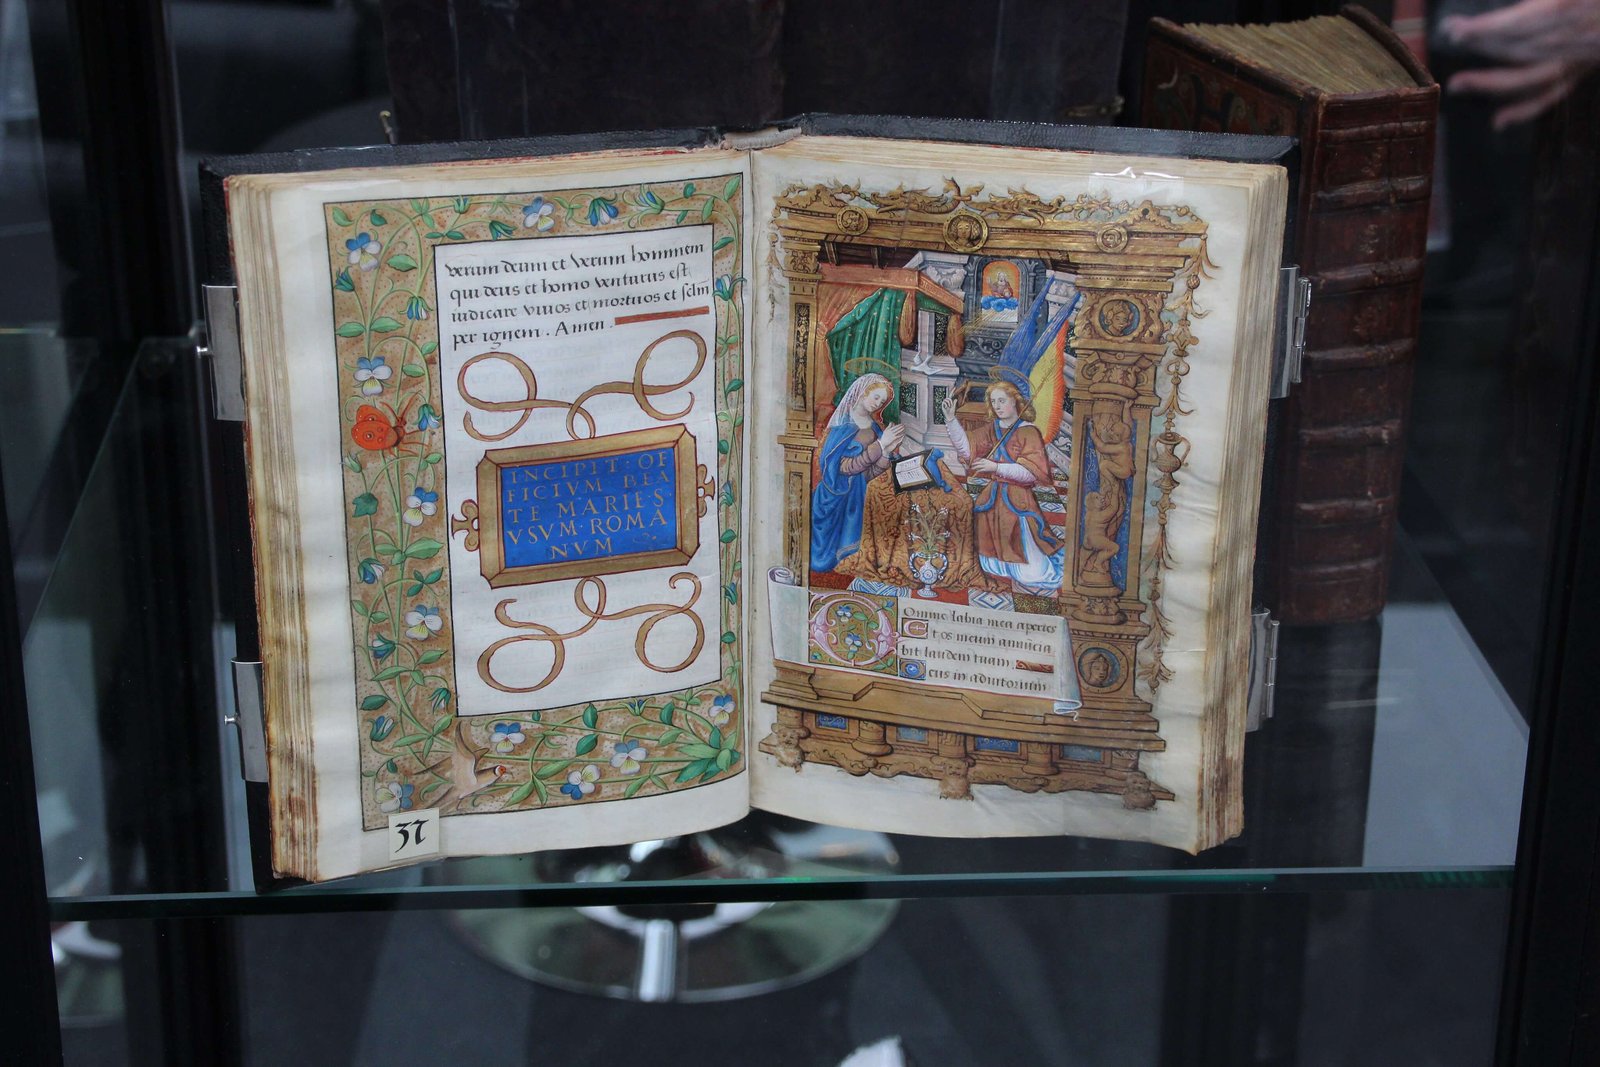 verum deum et verum hominem
qui deus et homo venturus est
iudicare vivos et mortuos et sclm
per ignem. Amen.
INCIPIT· OF
FICIVM BEA
TE MARIE·S·
VSVM·ROMA
NVM
37
Domine labia mea aperies
Et os meum annuncia
bit laudem tuam.
Deus in adiutorium